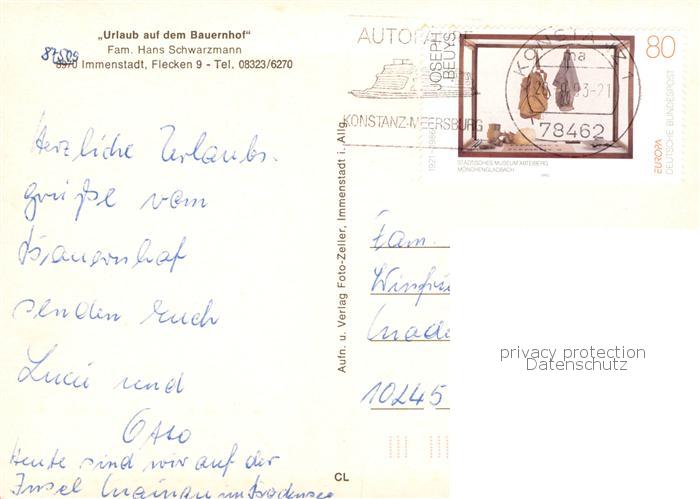 „Urlaub auf dem Bauernhof“
Fam. Hans Schwarzmann
87509
8970 Immenstadt, Flecken 9 - Tel. 08323/6270
Herzliche Urlaubs-
grüße vom
Bauernhof
senden Euch
Lucie und
Otto
Heute sind wir auf der
Insel Mainau im Bodensee
Aufn. u. Verlag Foto-Zeller, Immenstadt i. Allg.
CL
AUTOFÄ
KONSTANZ-MEERSBURG
KONSTANZ 1
ma
93-21
78462
JOSEPH
BEUYS
1921-1986
80
DEUTSCHE BUNDESPOST
EUROPA
STÄDTISCHES MUSEUM ABTEIBERG
MÖNCHENGLADBACH
Fam.
10245
privacy protection
Datenschutz